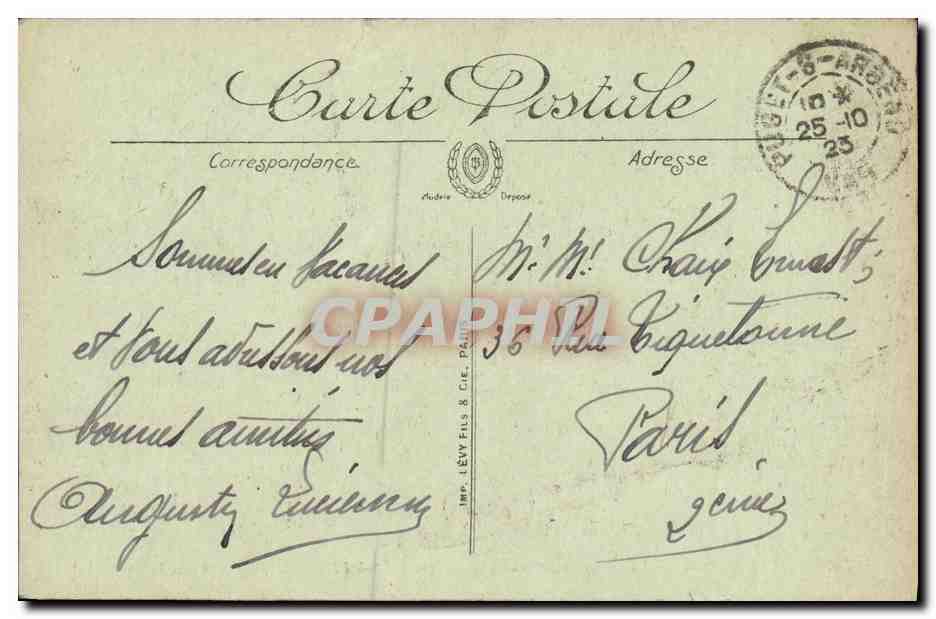 Carte Postale
Correspondance
Adresse
Modèle Déposé
PUGET-S-ARGENS
10 *
25-10
23
VAR
Sommes en Vacances
et Vous adressons nos
bonnes amitiés
Mr. Mr. Chaix Ernest
36 Rue Tiquetonne
Paris
2ème
IMP. LÉVY FILS & CIE. PARIS
CPAPHIL